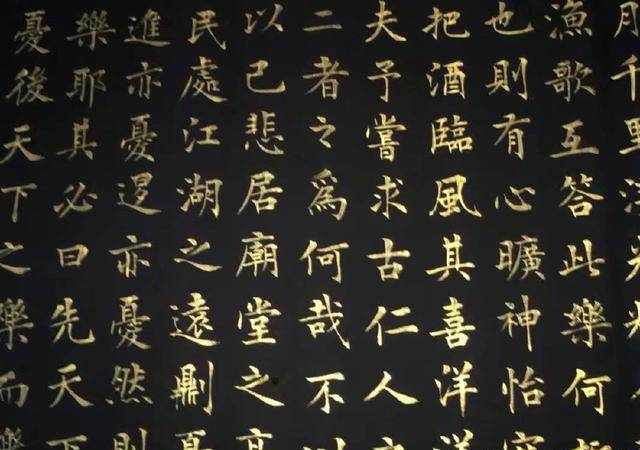 千里
漁歌互答此樂何
也則有心曠神怡
把酒臨風其喜洋洋
夫予嘗求古仁人之
二者之爲何哉不以
以己悲居廟堂之高
民處江湖之遠則憂
進亦憂退亦憂然則
樂耶其必曰先天下
憂後天下之樂而樂